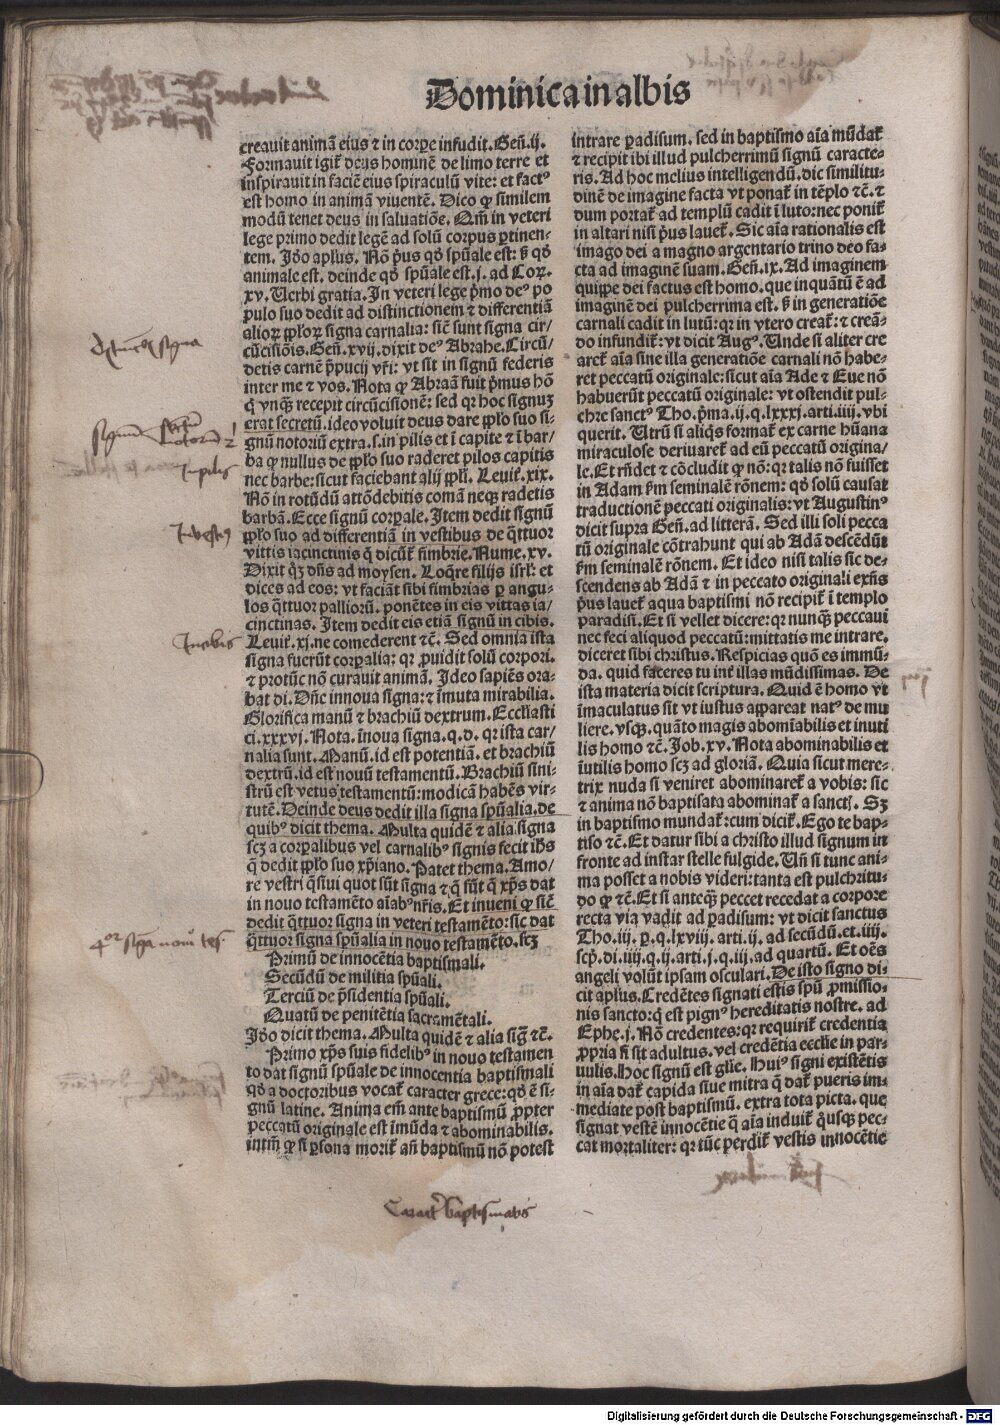 Dominica in albis
creauit animã eius ⁊ in corpe infudit. Geñ. ij.
Formauit igit᷑ deus hominẽ de limo terre et
inspirauit in faciẽ eius spiraculũ vite: et factꝰ
est homo in animã viuentẽ. Dico ꝙ similem
modũ tenet deus in saluatiõe. Qm̃ in veteri
lege primo dedit legẽ ad solũ corpus ꝑtinen-
tem. Iõo aplus. Nõ pͥus qð spũale est: ß qð
animale est, deinde qð spũale est. j. ad Coꝝ.
xv. Uerbi gratia. In veteri lege pͥmo deꝰ po
pulo suo dedit ad distinctionem ⁊ differentiã
alioꝝ pploꝝ signa carnalia: sicut sunt signa cir/
cũcisiõis. Geñ. xvij. dixit deꝰ Abrahe. Circũ/
detis carnẽ p̃pucij vr̃i: vt sit in signũ federis
inter me ⁊ vos. Nota ꝙ Abraã fuit pͥmus hõ
q̇ vnꝗꝫ recepit circũcisionẽ: sed qꝛ hoc signuꝫ
erat secretũ. ideo voluit deus dare pplo suo si-
gnũ notoriũ extra. s. in pilis et ĩ capite ⁊ ĩ bar/
ba ꝙ nullus de pplo suo raderet pilos capitis
nec barbe: sicut faciebant alij ppli. Leuit᷑. xix.
Nõ in rotũdũ attõdebitis comã neqꝫ radetis
barbã. Ecce signũ corpale. Item dedit signũ
pplo suo ad differentiã in vestibus de q̃ttuor
vittis iacinctinis q̃ dicũt᷑ fimbrie. Nume. xv.
Dixit q̇ꝫ dñs ad moysen. Loq̃re filijs isrl: et
dices ad eos: vt faciãt sibi fimbrias ꝑ angu-
los q̃ttuor palliorũ. ponẽtes in eis vittas ia/
cinctinas. Item dedit eis etiã signũ in cibis.
Leuit᷑. xj. ne comederent ⁊c̃. Sed omnia ista
signa fuerũt corpalia: qꝛ ꝓuidit solũ corpori.
⁊ protũc nõ curauit animã. Ideo sapiẽs ora-
bat di. Dñe innoua signa: ⁊ ĩmuta mirabilia.
Glorifica manũ ⁊ brachiũ dextrum. Eccl̃iasti
ci. xxxvj. Nota. ĩnoua signa. q. d. qꝛ ista car/
nalia sunt. Manũ. id est potentiã. et brachiũ
dextrũ. id est nouũ testamentũ. Brachiũ sini-
strũ est vetus testamentũ: modicã habẽs vir-
tutẽ. Deinde deus dedit illa signa spũalia. de
quibꝰ dicit thema. Multa quidẽ ⁊ alia signa
scꝫ a corpalibus vel carnalibꝰ signis fecit ih̃s
q̃ dedit pplo suo xp̃iano. Patet thema. Amo/
re vestri q̃siui quot sũt signa ⁊ q̃ sũt q̃ xp̃s dat
in nouo testamẽto aĩabꝰ nr̃is. Et inueni ꝙ sicut
dedit q̃ttuor signa in veteri testamẽto: sic dat
q̃ttuor signa spũalia in nouo testamẽto. scꝫ
Primũ de innocẽtia baptismali.
Secũdũ de militia spũali.
Terciũ de p̃sidentia spũali.
Quatũ de penitẽtia sacramẽtali.
Iõo dicit thema. Multa quidẽ ⁊ alia sig̃ ⁊c̃.
Primo xp̃s suis fidelibꝰ in nouo testamen
to dat signũ spũale de innocentia baptismali
qð a doctoribus vocat᷑ caracter grece: qð ẽ si-
gnũ latine. Anima em̃ ante baptismũ ꝓpter
peccatũ originale est ĩmũda ⁊ abominabilis.
intm̃ ꝙ si ꝑsona morit᷑ añ baptismũ nõ potest
intrare ꝑadisum. sed in baptismo aĩa mũdat᷑
⁊ recipit ibi illud pulcherrimũ signũ caracte-
ris. Ad hoc melius intelligendũ. dic similitu-
dinẽ de imagine facta vt ponat᷑ in tẽplo ⁊c̃. ⁊
dum portat᷑ ad templũ cadit ĩ luto: nec ponit᷑
in altari nisi pͥus lauet᷑. Sic aĩa rationalis est
imago dei a magno argentario trino deo fa-
cta ad imaginẽ suam. Geñ. ix. Ad imaginem
quippe dei factus est homo. que inquãtũ ẽ ad
imaginẽ dei pulcherrima est. ß in generatiõe
carnali cadit in lutũ: qꝛ in vtero creat᷑: ⁊ creã-
do infundit᷑: vt dicit Augꝰ. Unde si aliter cre
aret᷑ aĩa sine illa generatiõe carnali nõ habe-
ret peccatũ originale: sicut aĩa Ade ⁊ Eue nõ
habuerũt peccatũ originale: vt ostendit pul-
chre sanctꝰ Tho. pͥma. ij. q. lxxxj. arti. iiij. vbi
querit. Utrũ si aliq̇s format᷑ ex carne hũana
miraculose deriuaret᷑ ad eũ peccatũ origina/
le. Et rñdet ⁊ cõcludit ꝙ nõ: qꝛ talis nõ fuisset
in Adam ẜm seminalẽ rõnem: qð solũ causat
traductionẽ peccati originalis: vt Augustinꝰ
dicit supra Geñ. ad litterã. Sed illi soli pecca
tũ originale cõtrahunt qui ab Adã descẽdũt
ẜm seminalẽ rõnem. Et ideo nisi talis sic de-
scendens ab Adã ⁊ in peccato originali exñs
pͥus lauet᷑ aqua baptismi nõ recipit᷑ ĩ templo
paradisi. Et si vellet dicere: qꝛ nunꝗꝫ peccaui
nec feci aliquod peccatũ: mittatis me intrare.
diceret sibi christus. Respicias quõ es immũ-
da. quid faceres tu inter illas mũdissimas. De
ista materia dicit scriptura. Quid ẽ homo vt
ĩmaculatus sit vt iustus appareat natꝰ de mu
liere. vsqꝫ. quãto magis abomĩabilis et inuti
lis homo ⁊c̃. Job. xv. Nota abominabilis et
ĩutilis homo scꝫ ad gloriã. Quia sicut mere-
trix nuda si veniret abominaret᷑ a vobis: sic
⁊ anima nõ baptisata abominat᷑ a sanctis. Sꝫ
in baptismo mundat᷑: cum dicit᷑. Ego te bap-
tiso ⁊c̃. Et datur sibi a christo illud signum in
fronte ad instar stelle fulgide. Uñ si tunc ani-
ma posset a nobis videri: tanta est pulchritu-
do ꝙ ⁊c̃. Et si anteqꝫ peccet recedat a corpore
recta via vadit ad ꝑadisum: vt dicit sanctus
Tho. iij. p. q. lxviij. arti. ij. ad secũdũ. et. iiij.
scp̃. di. iiij. q. ij. arti. j. q. iij. ad quartũ. Et oẽs
angeli volũt ipsam osculari. De isto signo di-
cit aplus. Credẽtes signati estis spũ ꝓmissio-
nis sancto: q̃ est pignꝰ hereditatis nostre. ad
Ephe. j. Nõ credentes: qꝛ requirit᷑ credentia
ꝓpria si sit adultus. vel credẽtia ecclie in par-
uulis. Hoc signũ est glie. Huiꝰ signi existẽtis
in aĩa dat᷑ capida siue mitra q̃ dat᷑ pueris im-
mediate post baptismũ. extra tota picta. que
signat vestẽ innocẽtie q̃ aĩa induit᷑ q̇usqꝫ pec-
cat mortaliter: qꝛ tũc perdit᷑ vestis innocẽtie
In pilis
In cibis
4or signa noui tes.
Caracter baptismatis
Digitalisierung gefördert durch die Deutsche Forschungsgemeinschaft - DFG